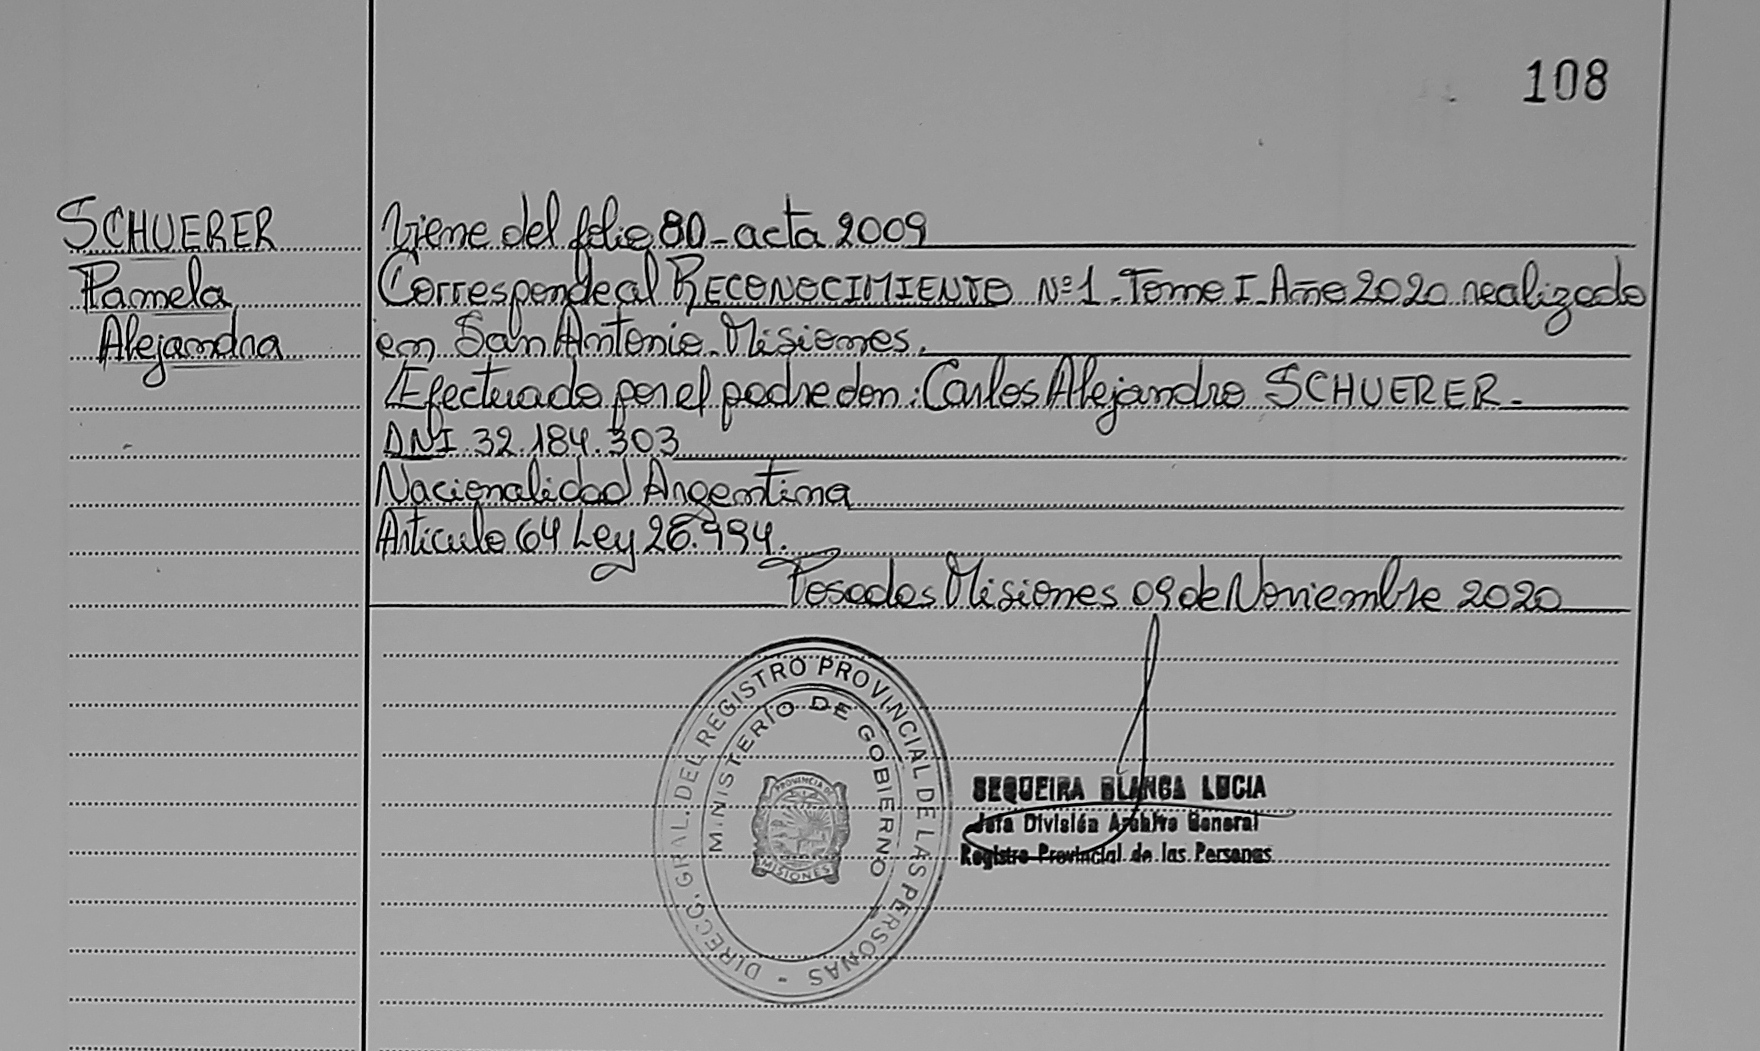 108
SCHUERER
Pamela
Alejandra
Viene del folio 80-acta 2009
Corresponde al RECONOCIMIENTO Nº1. Tomo I. Año 2020 realizado
en San Antonio. Misiones.
Efectuado por el padre don: Carlos Alejandro SCHUERER.-
DNI 32.184.303
Nacionalidad Argentina
Artículo 64 Ley 26.994.
Posadas Misiones 09 de Noviembre 2020
DIRECC. GRAL. DEL REGISTRO PROVINCIAL DE LAS PERSONAS -
MINISTERIO DE GOBIERNO
PROVINCIA DE
MISIONES
SEQUEIRA BLANCA LUCIA
Jefa División Archivo General
Registro Provincial de las Personas